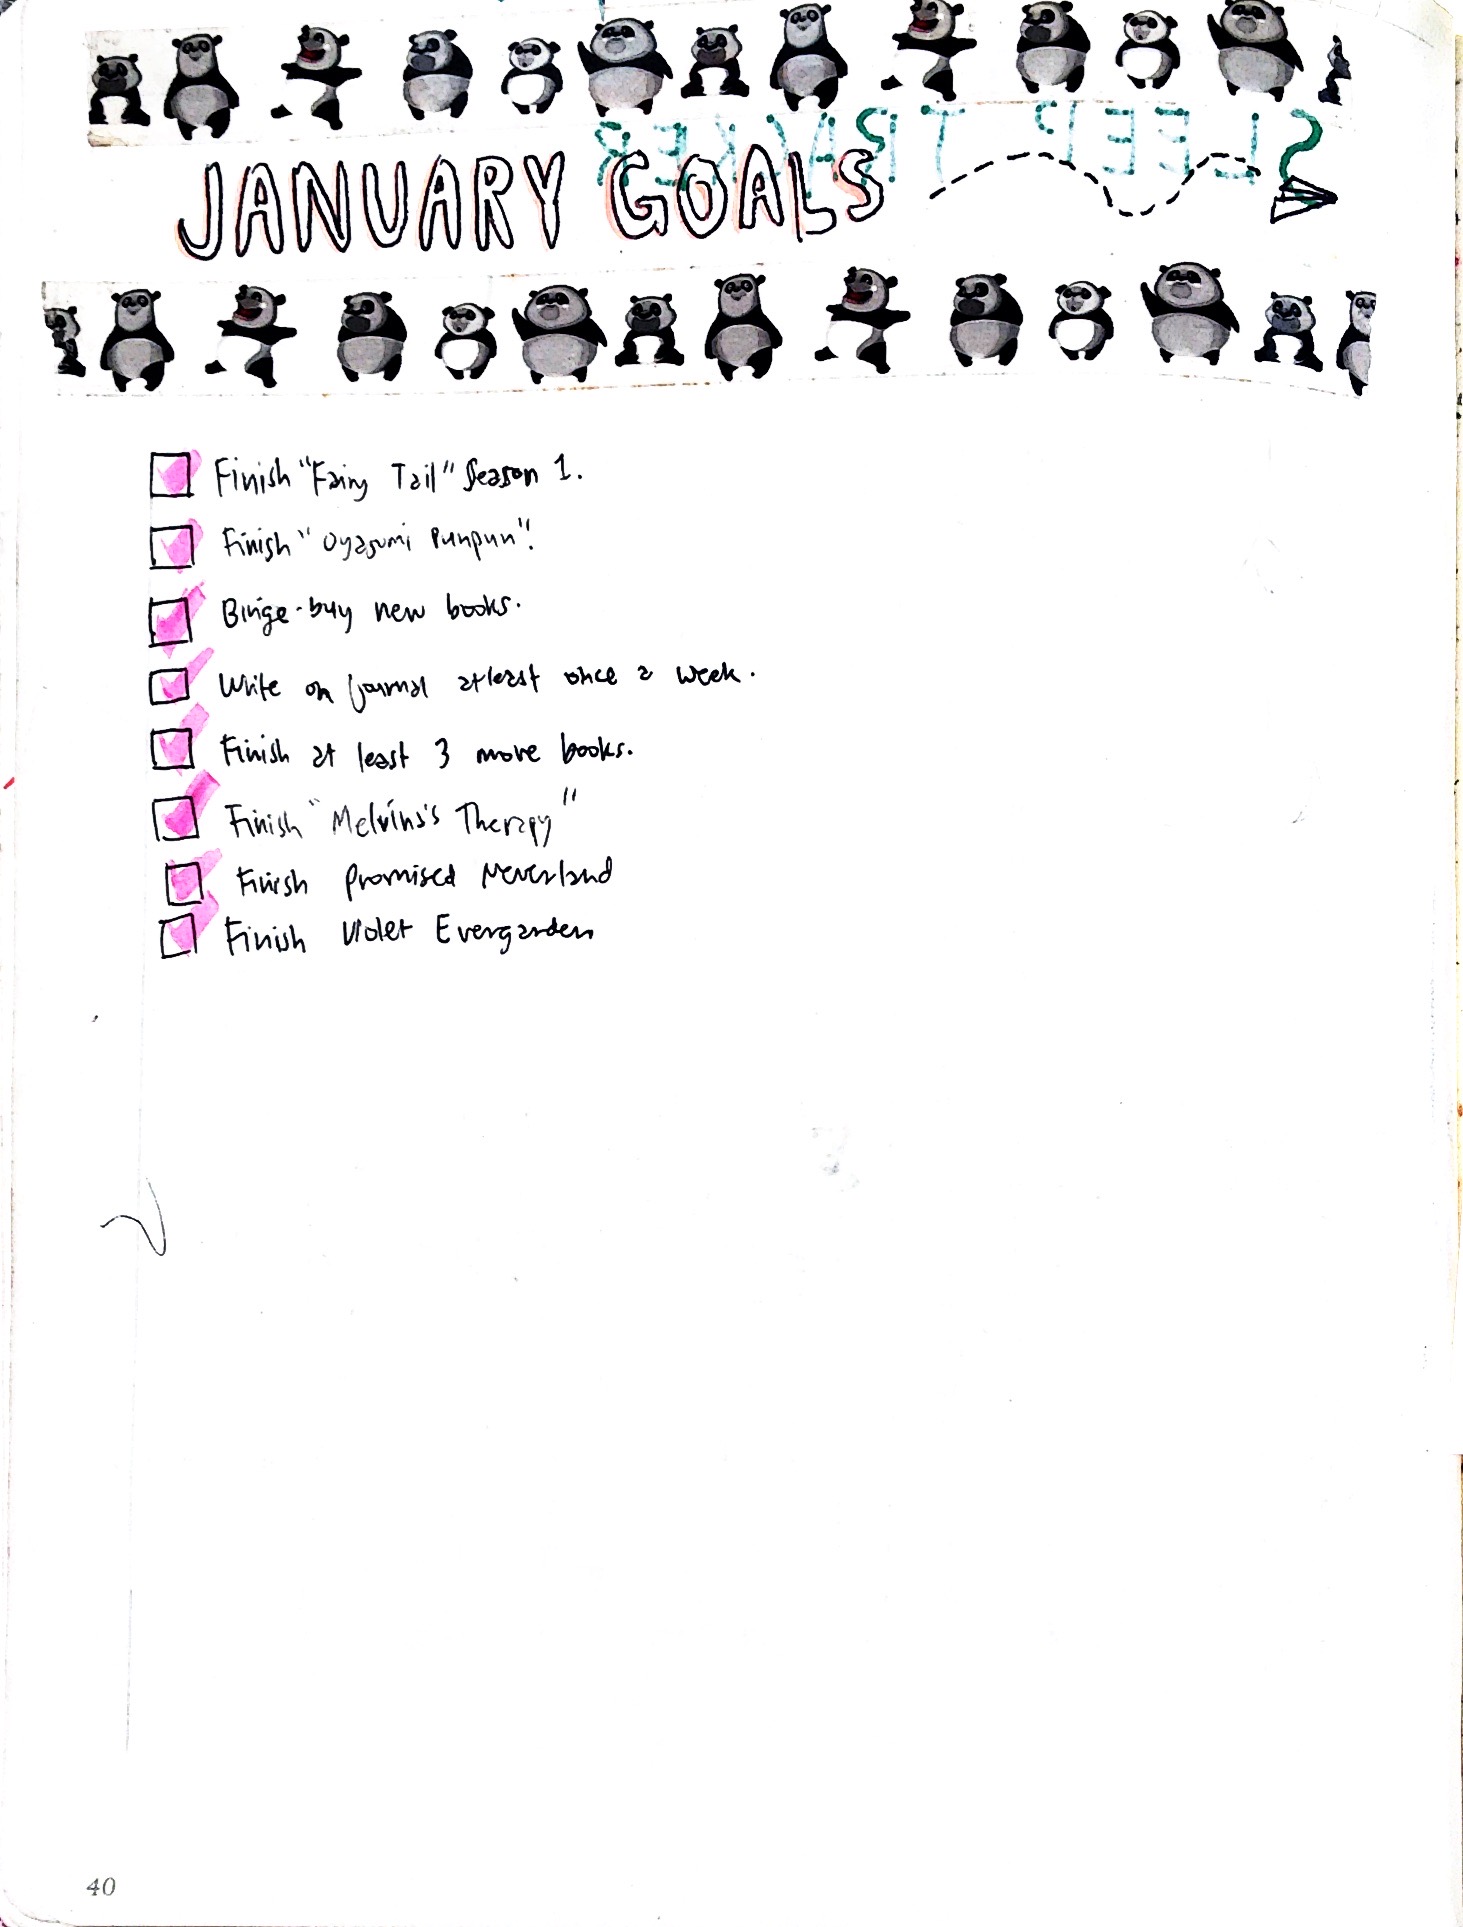 SLEEP TRACKER
JANUARY GOALS
Finish "Fairy Tail" Season 1.
Finish "Oyasumi Punpun".
Binge-buy new books.
Write on journal atleast once a week.
Finish at least 3 more books.
Finish "Melvins's Therapy"
Finish Promised Neverland
Finish Violet Evergarden
40